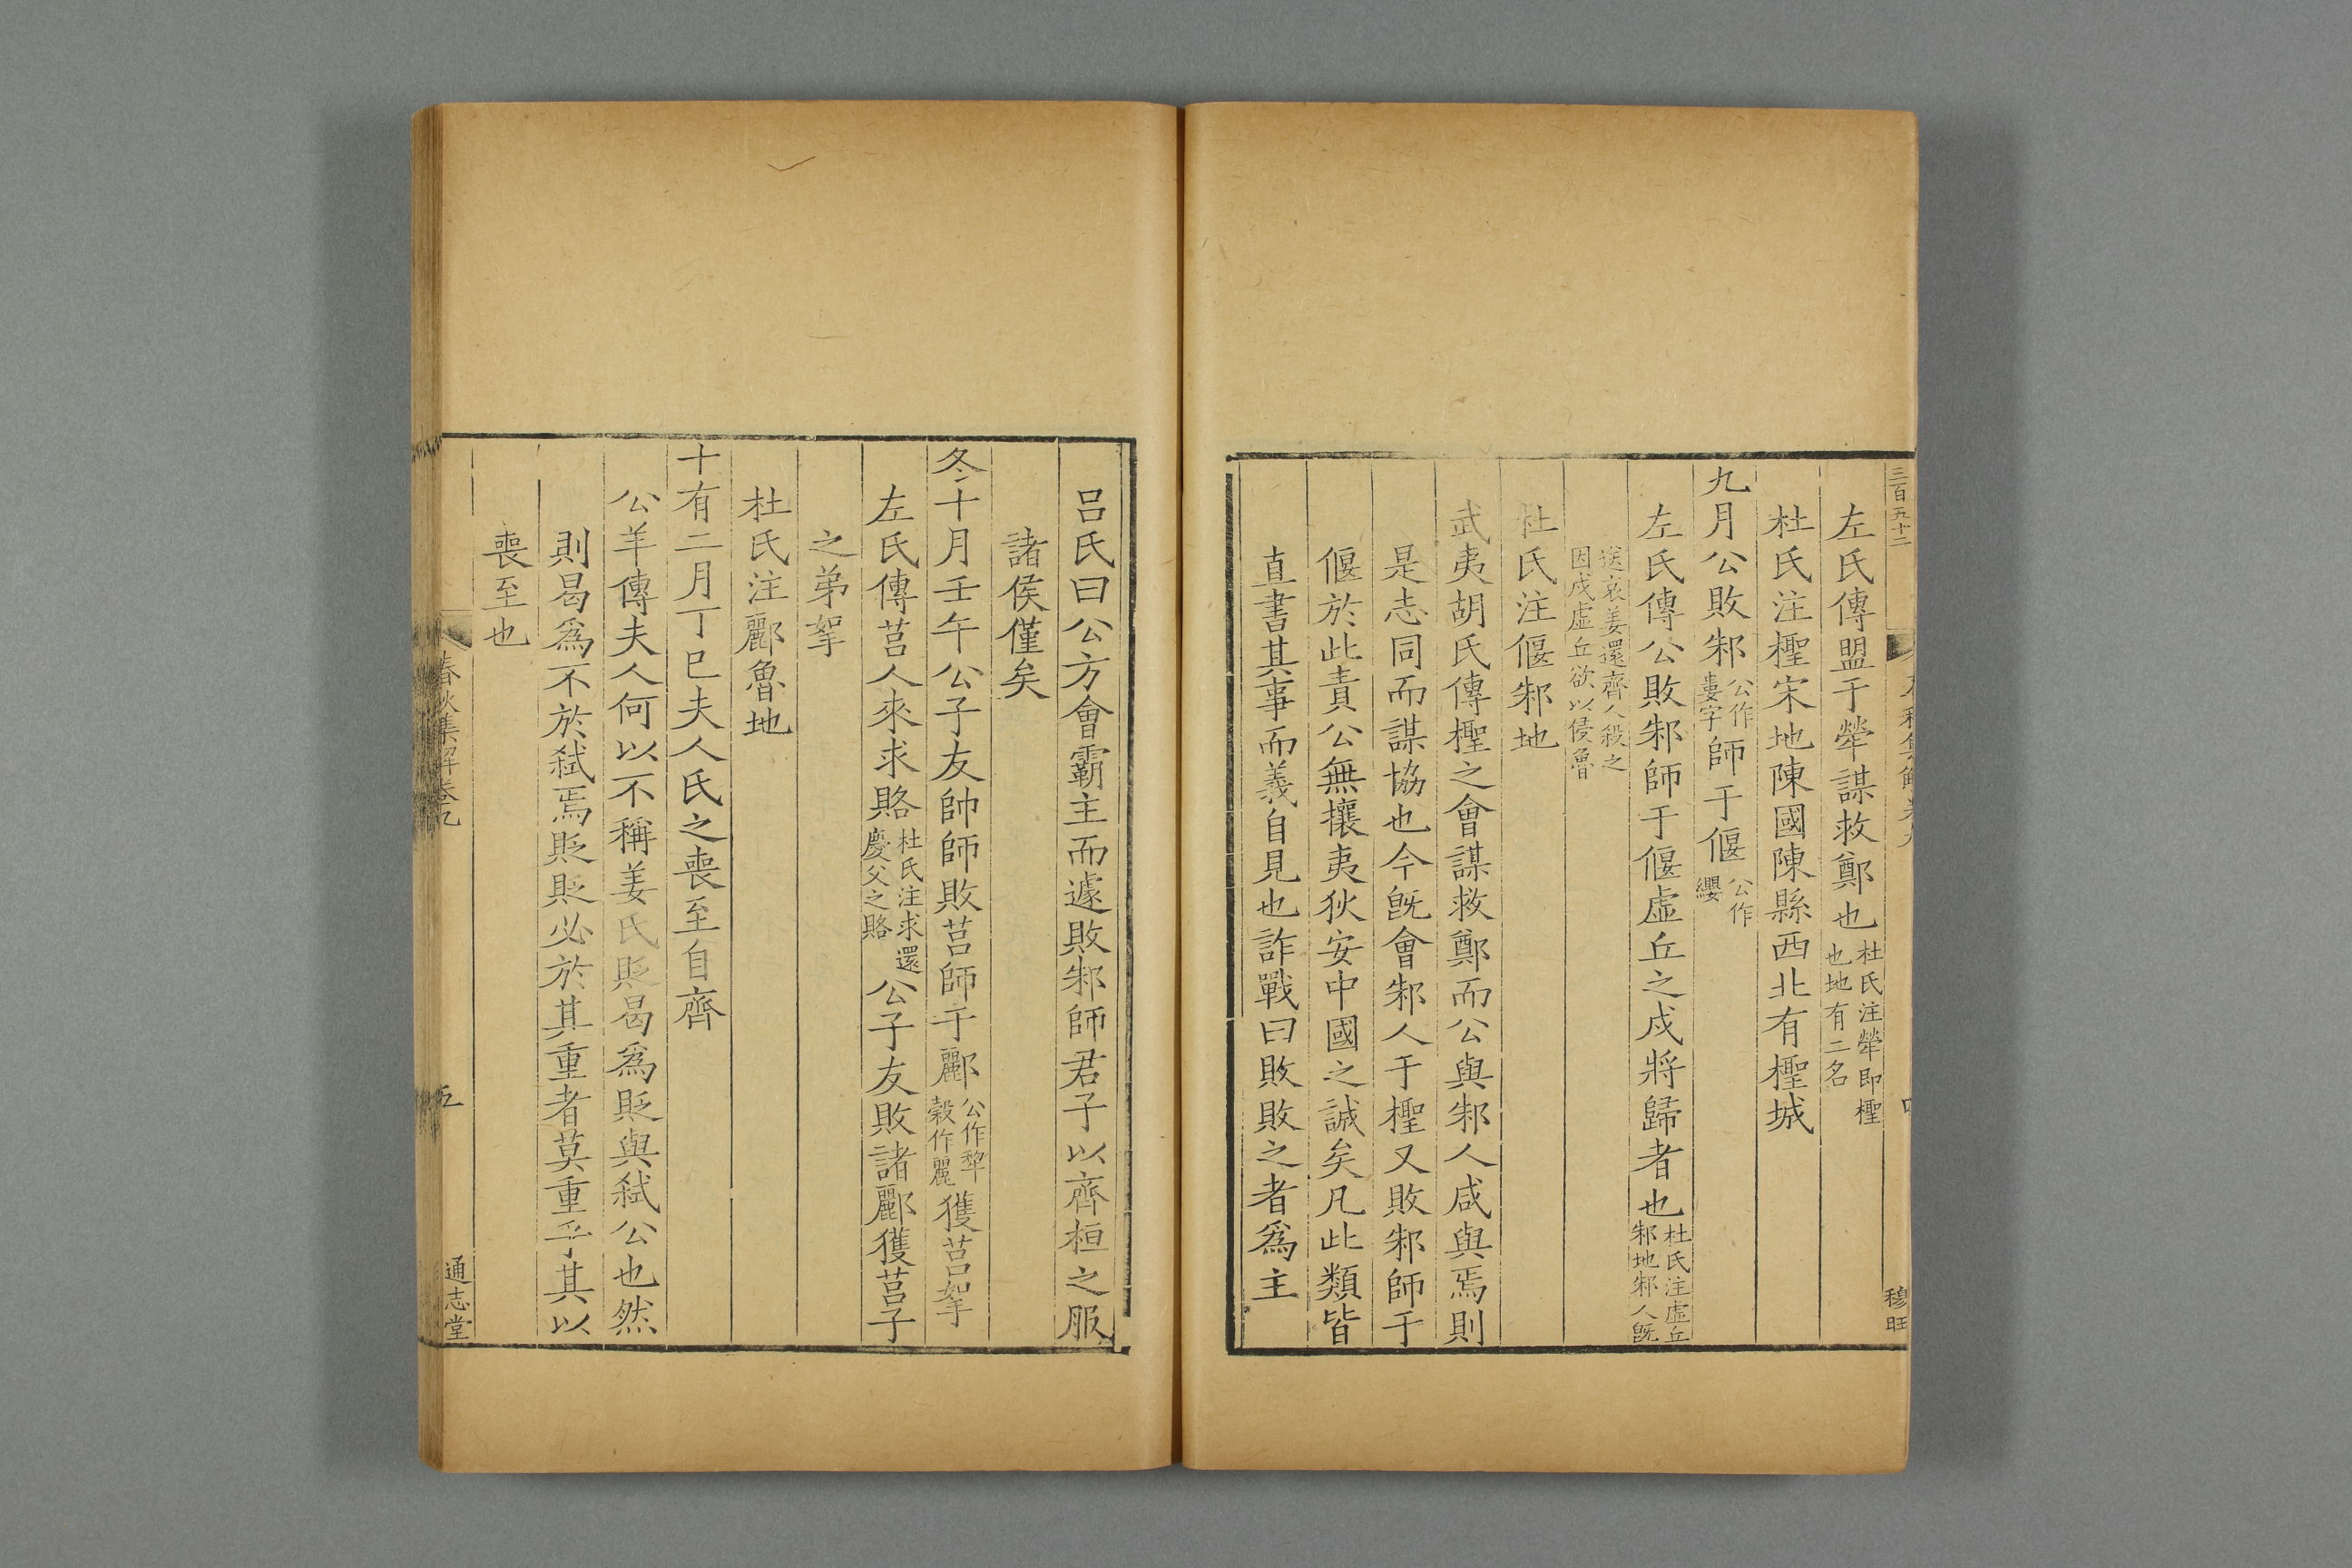 三百五十二
穆旺
左氏傳盟于犖謀救鄭也杜氏注犖即檉也地有二名
杜氏注檉宋地陳國陳縣西北有檉城
九月公敗邾公作婁字師于偃公作纓
左氏傳公敗邾師于偃虛丘之戍將歸者也杜氏注虛丘邾地邾人既
送哀姜還齊人殺之因戍虛丘欲以侵魯
杜氏注偃邾地
武夷胡氏傳檉之會謀救鄭而公與邾人咸與焉則
是志同而謀協也今旣會邾人于檉又敗邾師于
偃於此責公無攘夷狄安中國之誠矣凡此類皆
直書其事而義自見也詐戰曰敗敗之者爲主
吕氏曰公方會霸主而遽敗邾師君子以齊桓之服
諸侯僅矣
冬十月壬午公子友帥師敗莒師于酈公作犂穀作麗獲莒挐
左氏傳莒人來求賂杜氏注求還慶父之賂公子友敗諸酈獲莒子
之弟挐
杜氏注酈魯地
十有二月丁巳夫人氏之喪至自齊
公羊傳夫人何以不稱姜氏貶曷爲貶與弑公也然
則曷爲不於弑焉貶貶必於其重者莫重乎其以
喪至也
春秋集解卷九
五
通志堂